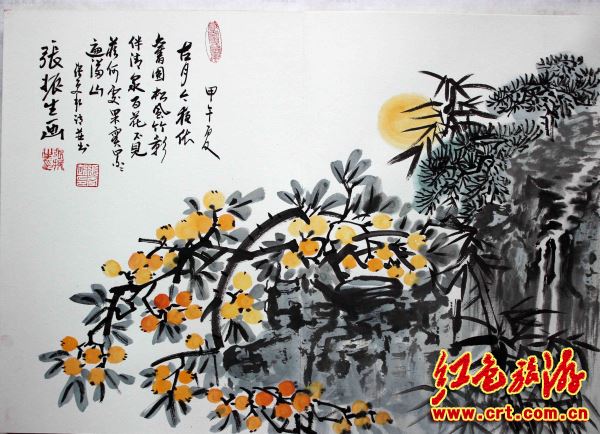 甲午夏
古月今夜依
舊圓松風竹影
伴清泉百花不見
落何處果實累々
遍滿山
詩並書
張振生画
红色旅游
www.crt.com.cn